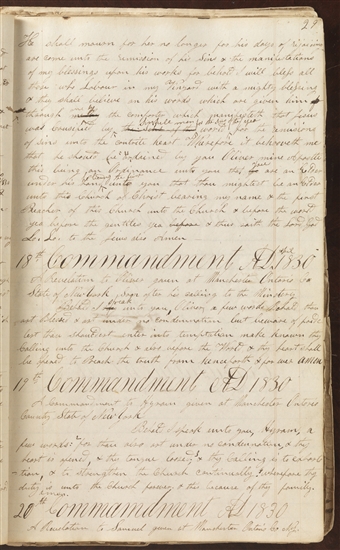 29
He shall mourn for her no longer for his days of rejoicing
are come unto the remission of his sins & the manifestations
of my blessings upon his works for behold I will bless all
those who Labour in my vinyard with a mighty blessing
& they shall believe on his words which are given him
through the comforter which manifesteth that Jesus
was crusified by sinful men for the sins of the World
yea for the remission
of Sins unto the contrite heart Wherefore it behooveth me
that he should be ordained by you Oliver mine apostle
this being an Ordinance unto you that you are an Elder
under his hand he being the first
unto you that thou mightest be an Elder
unto this Church of Christ bearing my name & the first
Preacher of this Church unto the Church & before the world
yea before the gentiles yea & thus saith the Lord God
Lo Lo to the Jews also Amen
18th Commandment AD 1830
A Revelation to Oliver given at Manchester Ontario Co
State of New York soon after his calling to the Ministry
Behold I speak unto you, Oliver, a few words Behold thou
art blessed & art under no condemnation but beware of pride
lest thou shouldst enter into temptation make known thy
calling unto the Church & also before the World & thy heart shall
be opened to Preach the truth from henceforth & forever amen
19th Commandment AD 1830
A Commandment to Hyram given at Manchester Ontario
County State of New York
Behold I speak unto you Hyram, a
few words for thou also art under no condemnation & thy
heart is opened, & thy tongue loosed, & thy Calling is to exhorta
-tion, & to strengthen the Church continually, wherefore thy
duty is unto the Church forever, & this because of thy family.
amen
20th Commandment AD 1830
A Revelation to Samuel given at Manchester Ontario Co